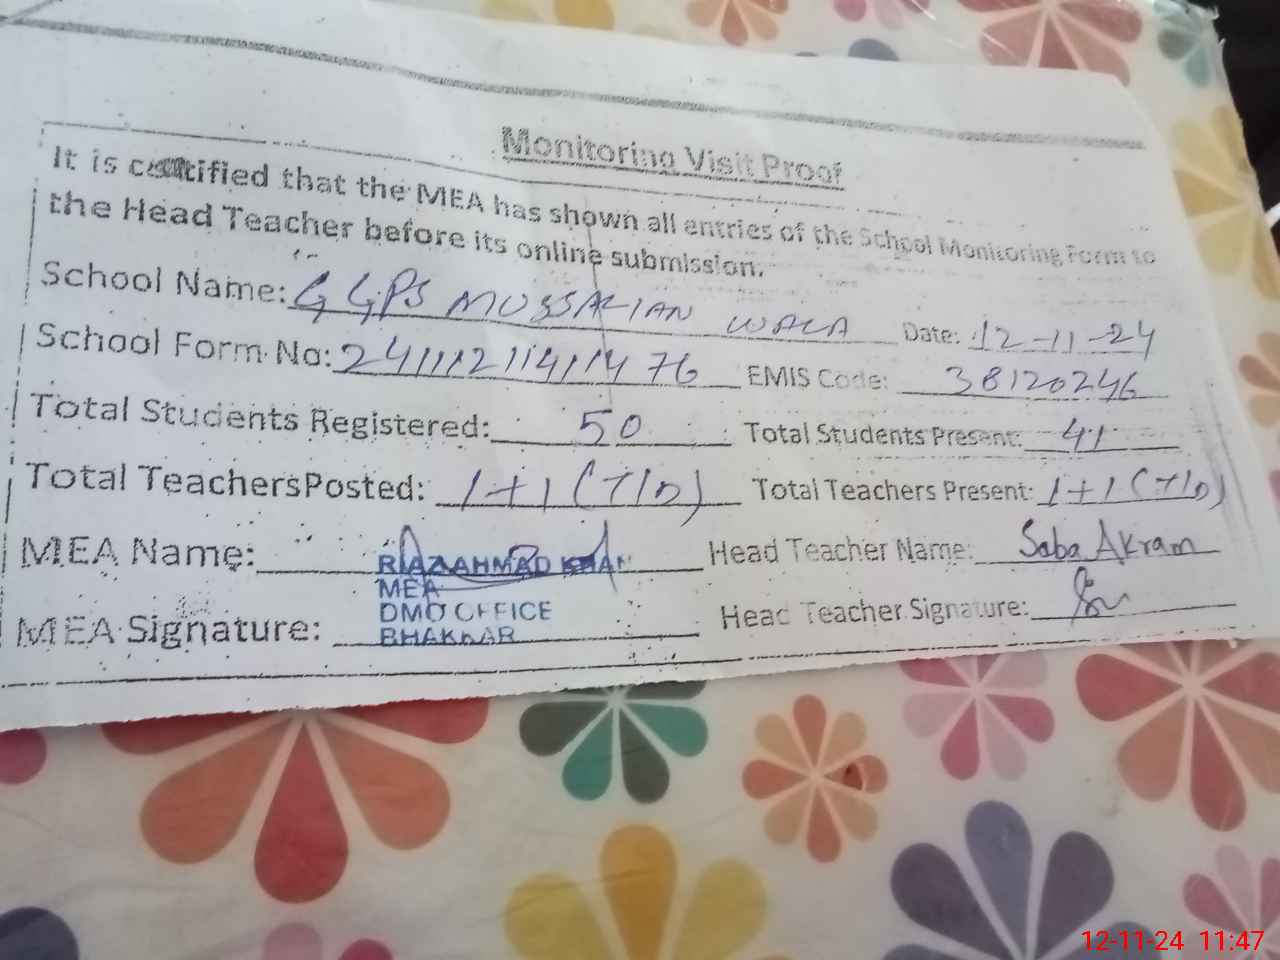 Monitoring Visit Proof
It is certified that the MEA has shown all entries of the School Monitoring Form to
the Head Teacher before its online submission.
School Name: GGPS MUSSALIAN WALA Date: 12-11-24
School Form No: 241112114111476 EMIS Code: 38120246
Total Students Registered: 50 Total Students Present: 41
Total Teachers Posted: 1+1 (T/D) Total Teachers Present: 1+1 (T/D)
MEA Name: RIAZ AHMAD KHAN Head Teacher Name: Saba Akram
MEA
DMO OFFICE
MEA Signature: BHAKKAR Head Teacher Signature:
12-11-24 11:47